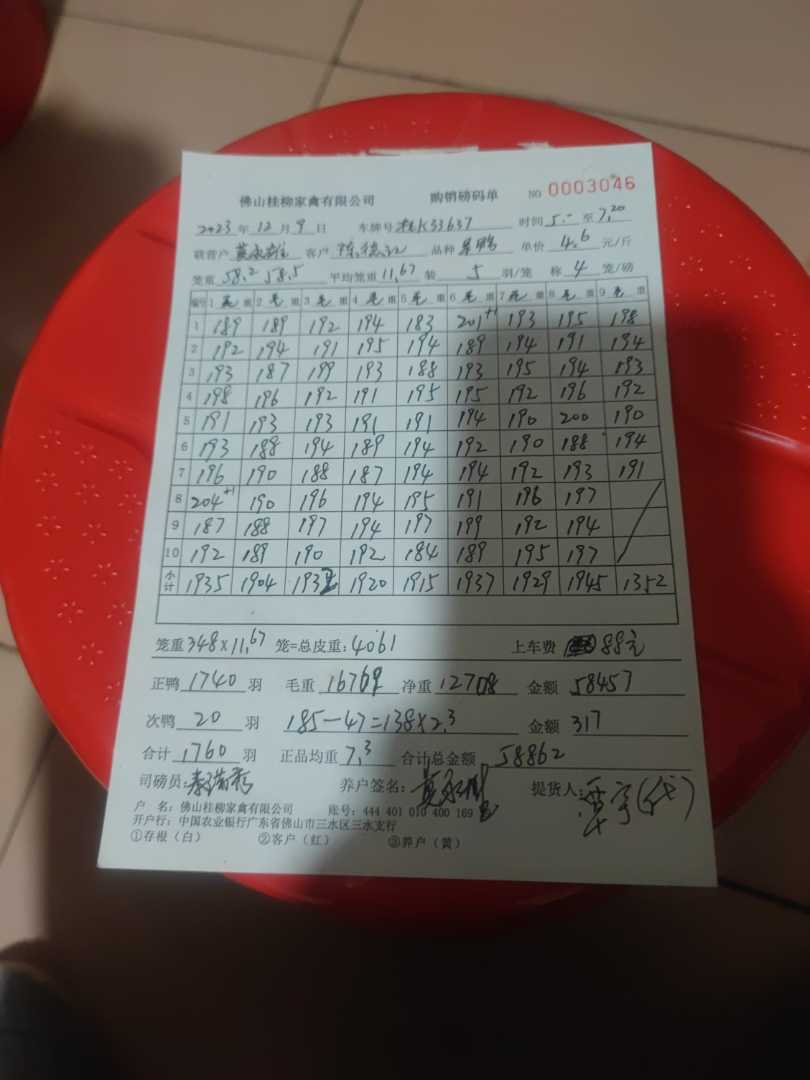 佛山桂柳家禽有限公司 购销磅码单 NO 0003046
2023年12月9日 车牌号 桂K33637 时间 5.- 至 7.20
联营户 客户 品种 单价 4.6 元/斤
笼重 58.2 58.5 平均笼重 11.67 装 5 羽/笼 称 4 笼/磅
编号 1 毛 重 2 毛 重 3 毛 重 4 毛 重 5 毛 重 6 毛 重 7 毛 重 8 毛 重 9 毛 重
1 189 189 192 194 183 201+1 193 195 198
2 192 194 191 195 194 189 194 191 194
3 193 187 199 193 188 193 195 194 193
4 198 196 192 191 195 195 192 196 192
5 191 193 193 191 191 194 190 200 190
6 193 188 194 189 194 192 190 188 194
7 196 190 188 187 194 194 192 193 191
8 204+1 190 196 194 195 191 196 197
9 187 188 197 194 197 199 192 194
10 192 189 190 192 184 189 195 197
小计 1935 1904 1932 1920 1915 1937 1929 1945 1352
笼重 348×11.67 笼=总皮重:4061 上车费 88元
正鸭 1740 羽 毛重 16769 净重 12708 金额 58457
次鸭 20 羽 185-47=138×2.3 金额 317
合计 1760 羽 正品均重 7.3 合计总金额 58862
司磅员: 养户签名: 提货人: (代)
户 名:佛山桂柳家禽有限公司 账号:444 401 010 400 169
开户行:中国农业银行广东省佛山市三水区三水支行
①存根(白) ②客户(红) ③养户(黄)